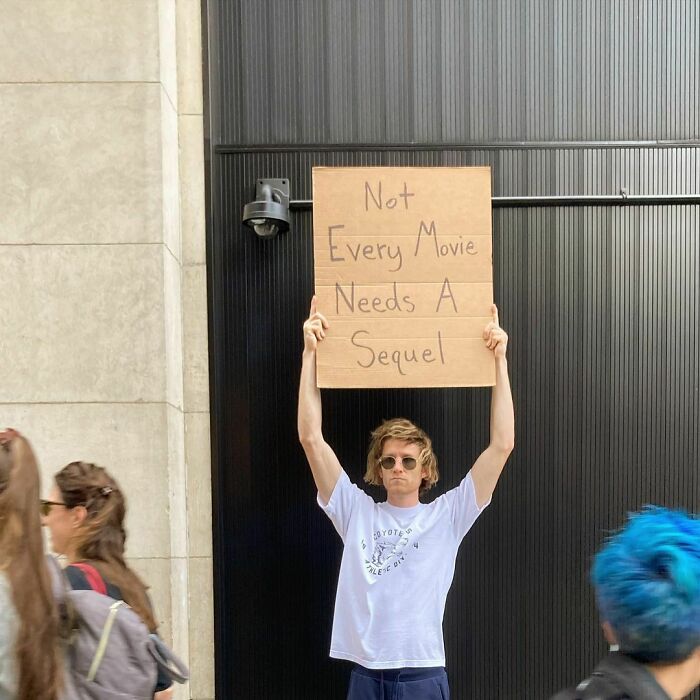 Not
Every Movie
Needs A
Sequel
COYOTES